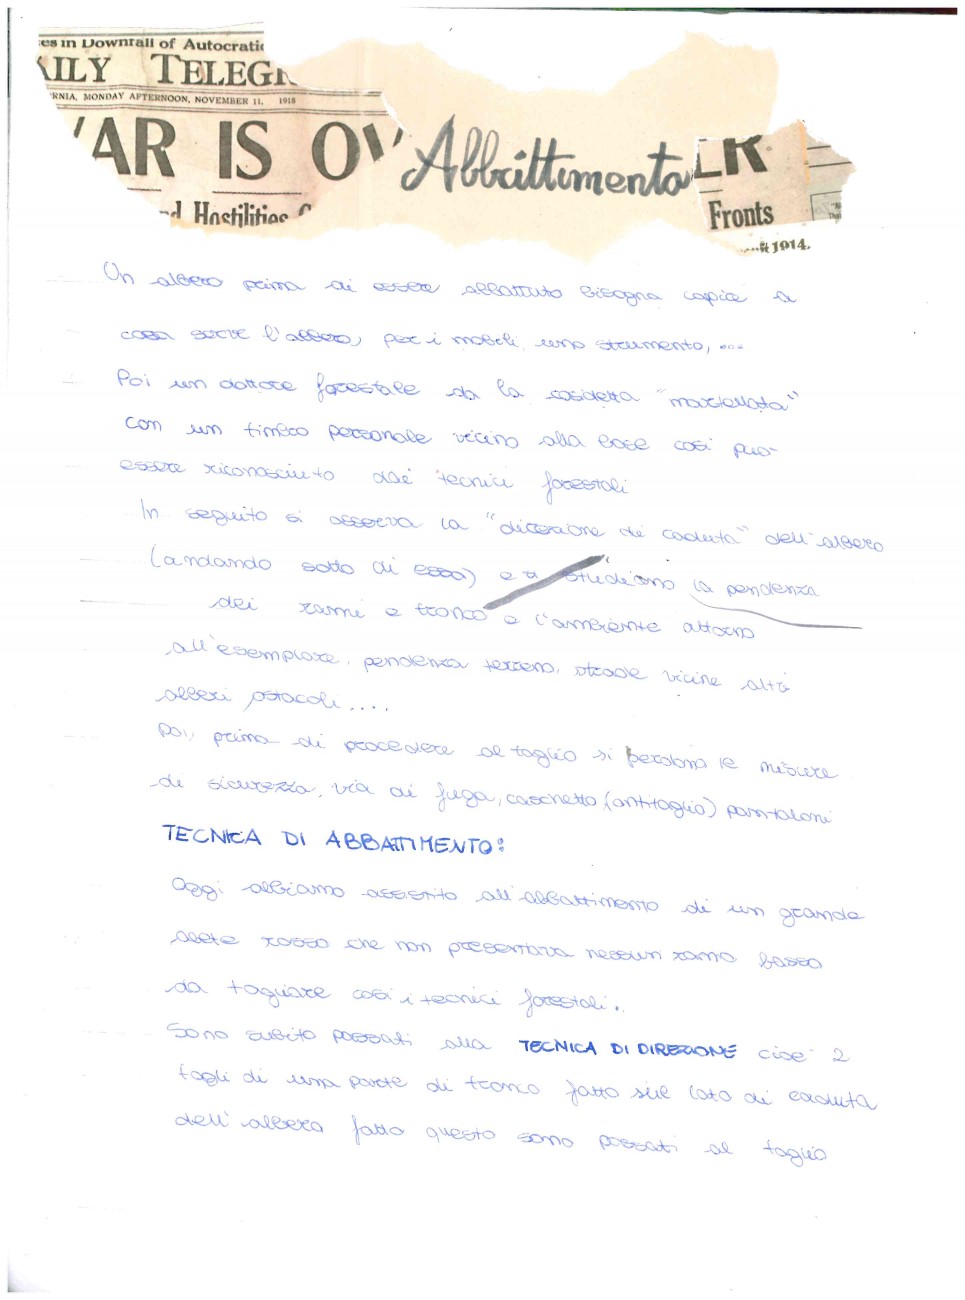 es in Downfall of Autocratic
AILY TELEGR
RNIA, MONDAY AFTERNOON, NOVEMBER 11, 1918
WAR IS OV
Abbattimento
ER
d Hostilities
Fronts
1914.
Un albero prima di essere abbattuto bisogna capire a
cosa serve l'albero, per i mobili, uno strumento, ...
Poi un dottore forestale da la cosidetta "martellata"
con un timbro personale vicino alla base così può
essere riconosciuto dai tecnici forestali
In seguito si osserva la "direzione di caduta" dell'albero
(andando sotto di esso) e si studiano la pendenza
dei rami e tronco e l'ambiente attorno
all'esemplare, pendenza terreno, strade vicine altri
alberi ostacoli....
Poi, prima di procedere al taglio si perdono le misure
di sicurezza, via di fuga, caschetto, (antitaglio) pantaloni
TECNICA DI ABBATTIMENTO:
Oggi abbiamo assistito all'abbattimento di un grande
abete rosso che non presentava nessun ramo basso
da tagliare così i tecnici forestali..
Sono subito passati alla TECNICA DI DIREZIONE cioè 2
tagli di una parte di tronco fatto sul lato di caduta
dell'albero fatto questo sono passati al taglio